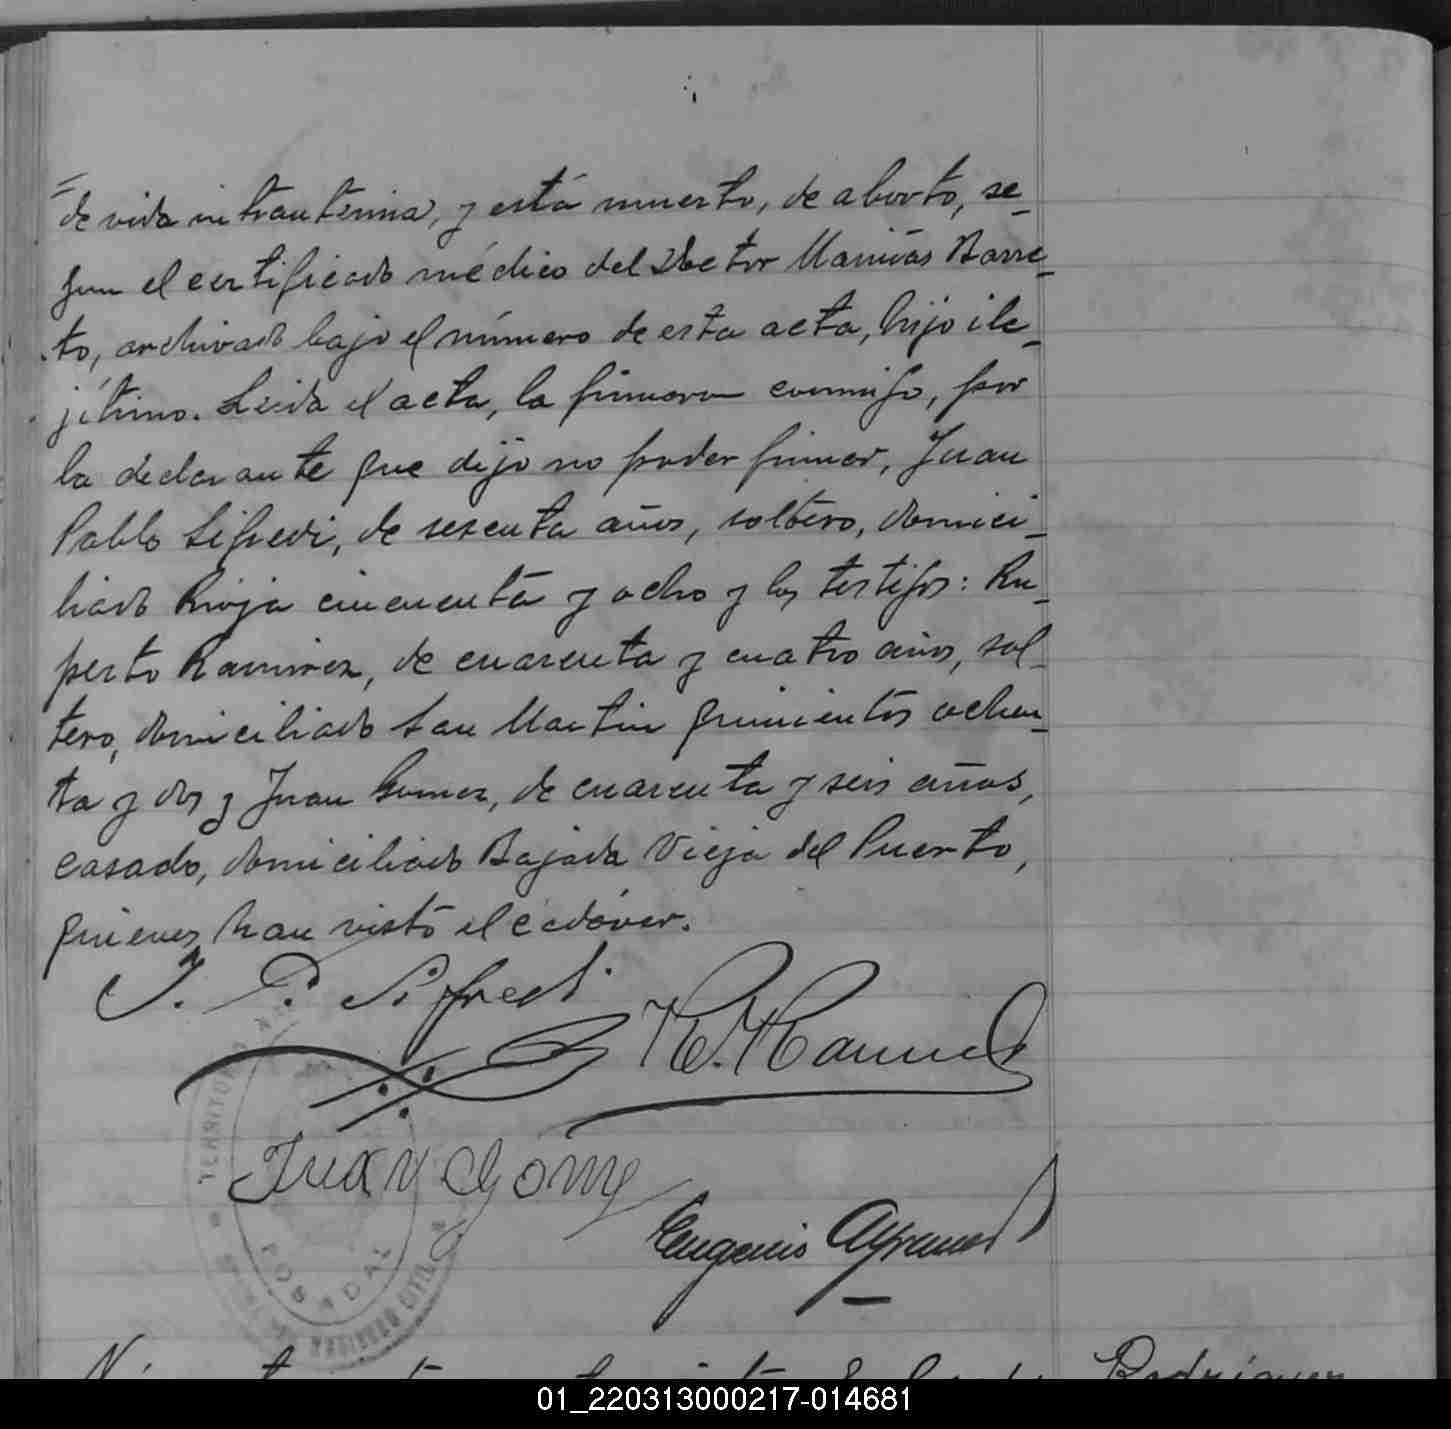 de vida intrauterina, y está muerto, de aborto, se_
gun el certificado médico del Doctor Mamiás Barre_
to, archivado bajo el número de esta acta, hijo ile_
jítimo. Leida el acta, la firmaron conmigo, por
la declarante que dijo no poder firmar, Juan
Pablo Sifredi, de sesenta años, soltero, domici_
liado Rioja cincuenta y ocho y los testigos: Ru_
perto Ramirez, de cuarenta y cuatro años, sol_
tero, domiciliado San Martin quinientos ochen_
ta y dos y Juan Gomez, de cuarenta y seis años,
casado, domiciliado Bajada Vieja del Puerto,
quienes han visto el cadáver.
J. P. Sifredi
R. Ramirez
Juan Gomez
Eugenio
TERRITORIO
POSADAS
REGISTRO CIVIL
Rodriguez
01_220313000217-014681